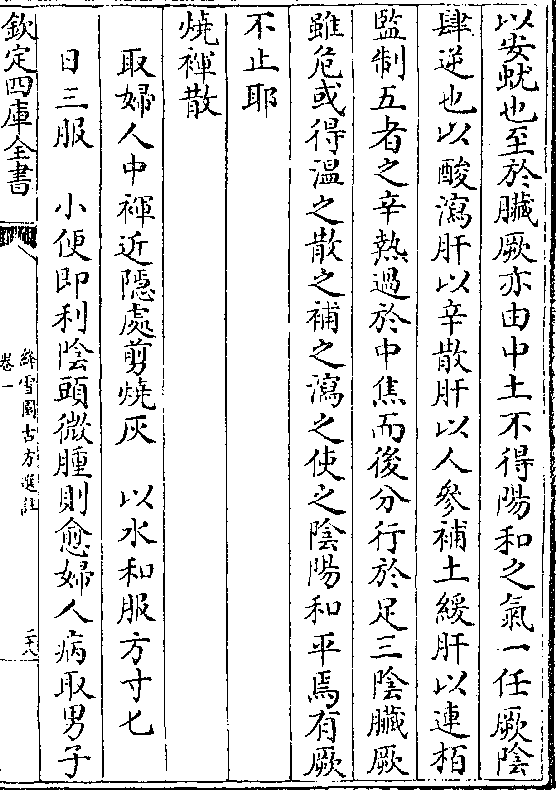 以安蚘也至於臟厥亦由中土不得陽和之氣一任厥陰
肆逆也以酸瀉肝以辛散肝以人參補土緩肝以連柏
監制五者之辛熱過於中焦而後分行於足三陰臟厥
雖危或得溫之散之補之瀉之使之陰陽和平焉有厥
不止耶
燒裈散
取婦人中裈近隱處剪燒灰　以水和服方寸匕
日三服　小便即利陰頭微腫則愈婦人病取男子
欽定四庫全書
絳雪園古方選註
卷一
二十八